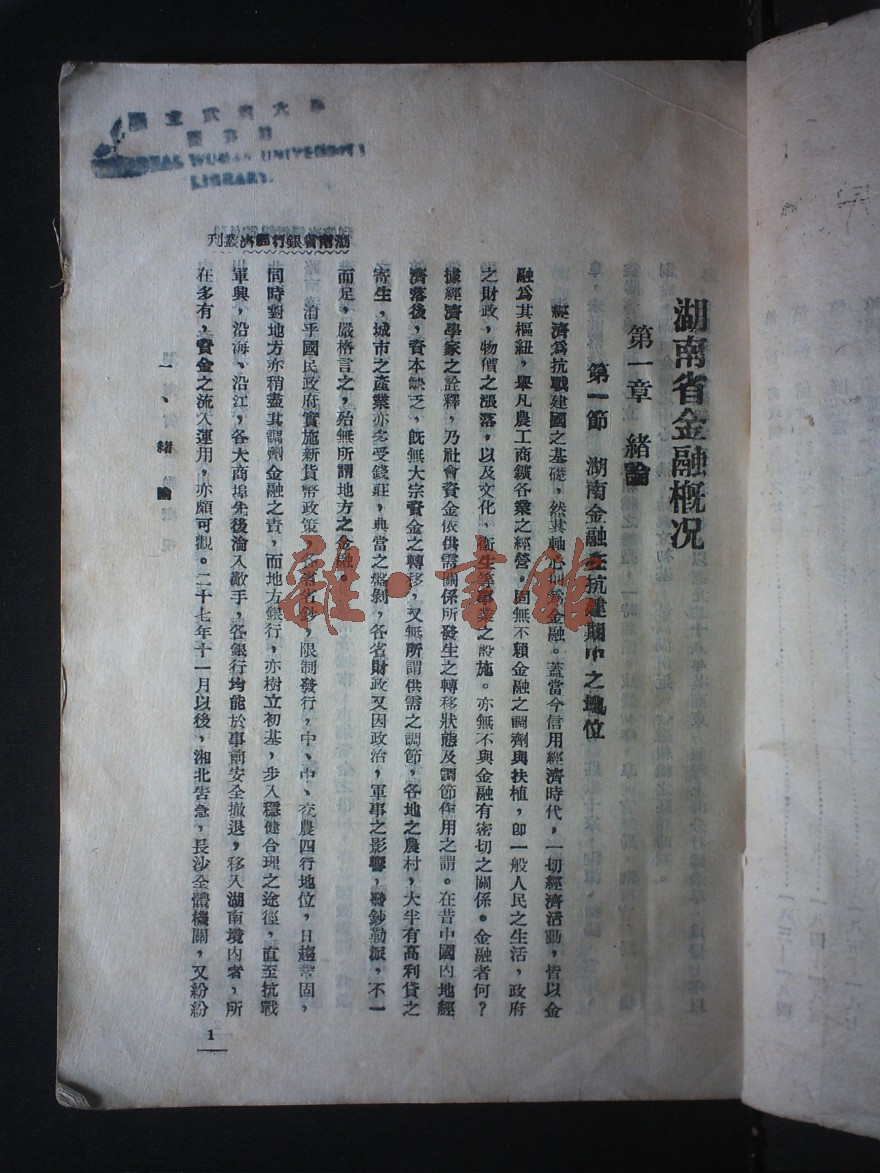 湖南省金融概况
第一章 緒論
第一節 湖南金融在抗建期中之地位
經濟爲抗戰建國之基礎，然其軸心則爲金融。蓋當今信用經濟時代，一切經濟活動，皆以金
融爲其樞紐，舉凡農工商鑛各業之經營，固無不賴金融之調劑與扶植，卽一般人民之生活，政府
之財政，物價之漲落，以及文化，衛生等事業之設施。亦無不與金融有密切之關係。金融者何？
據經濟學家之詮釋，乃社會資金依供需關係所發生之轉移狀態及調節作用之謂。在昔中國內地經
濟落後，資本缺乏，旣無大宗資金之轉移，又無所謂供需之調節，各地之農村，大半有高利貸之
寄生，城市之產業亦多受錢莊，典當之盤剝，各省財政又因政治，軍事之影響，發鈔勒派，不一
而足，嚴格言之，殆無所謂地方之金融。
洎乎國民政府實施新貨幣政策，各省省鈔，限制發行，中、中、交農四行地位，日趨鞏固，
同時對地方亦稍盡其調劑金融之責，而地方銀行，亦樹立初基，步入穩健合理之途徑，直至抗戰
軍興，沿海、沿江，各大商埠先後淪入敵手，各銀行均能於事前安全撤退，移入湖南境內者，所
在多有，資金之流入運用，亦頗可觀。二十七年十一月以後，湘北告急，長沙全體機關，又紛紛
湖南省銀行經濟叢刊
一、緒論
1
國立武漢大學
圖書館
NATIONAL WUHAN UNIVERSITY
LIBRARY.
雜·書館